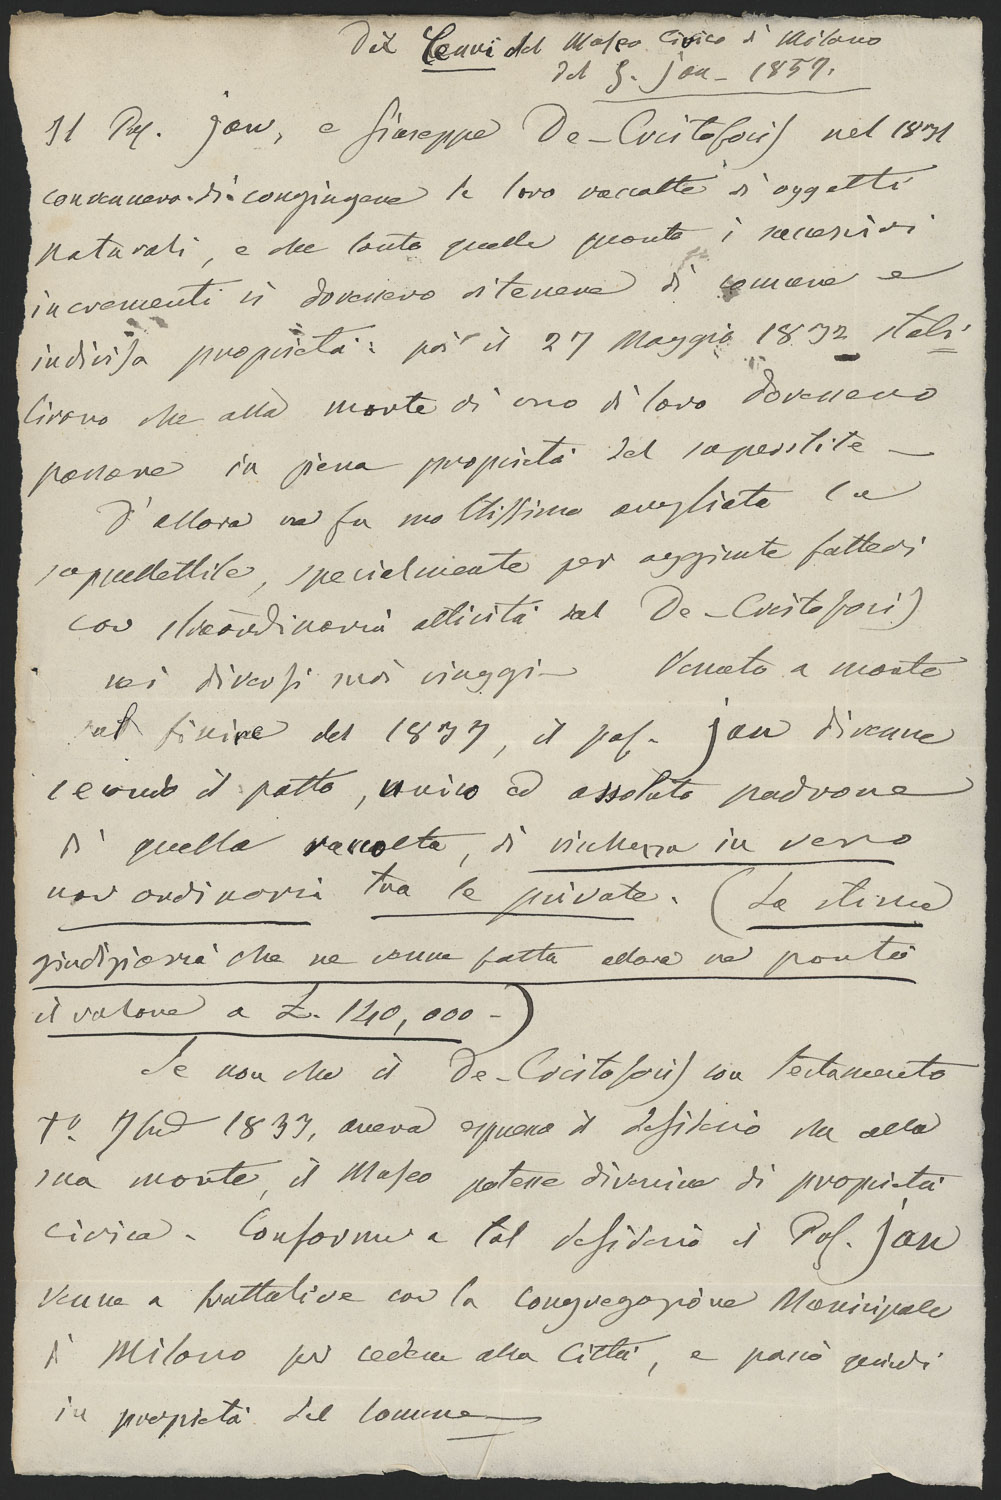 Dai Cenni del Museo Civico di Milano
del G. Jan - 1857.
Il Prof. Jan, e Giuseppe De-Cristoforis nel 1831
convennero di congiungere le loro raccolte di oggetti
naturali, e che tanto quelle quanto i successivi
incrementi si dovessero ritenere di comune e
indivisa proprietà: poi il 27 Maggio 1832 stabi
lirono che alla morte di uno di loro dovessero
passare in piena proprietà del superstite -
D'allora ne fu moltissimo ampliata la
suppellettile, specialmente per aggiunte fattevi
con straordinaria attività dal De-Cristoforis
nei diversi suoi viaggi - Venuto a morte
sul finire del 1837, il prof. Jan divenne
secondo il patto, unico ed assoluto padrone
di quella raccolta, di ricchezza in vero
non ordinaria tra le private. (La stima
giudiziaria che ne venne fatta allora ne portò
il valore a L. 140,000 -)
Se non che il De-Cristoforis con testamento
7bre 1837, aveva espresso il desiderio che alla
sua morte, il Museo potesse divenire di proprietà
civica - Conforme a tal desiderio il Prof. Jan
venne a trattative con la Congregazione Municipale
di Milano per cedere alla Città, e passò quindi
in proprietà del Comune -